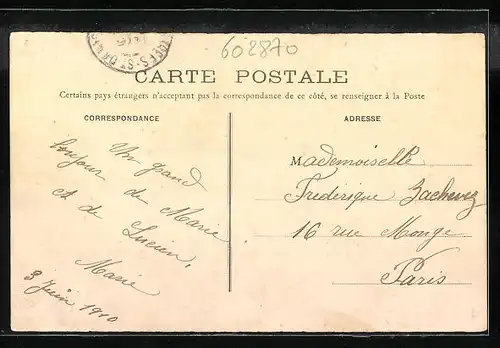 602870
CARTE POSTALE
Certains pays étrangers n'acceptant pas la correspondance de ce côté, se renseigner à la Poste
CORRESPONDANCE
Un grand
bonjour de Marie
et de Lucien,
Marie
3 Juin 1910
ADRESSE
Mademoiselle
Frederique
16 rue Monge
Paris